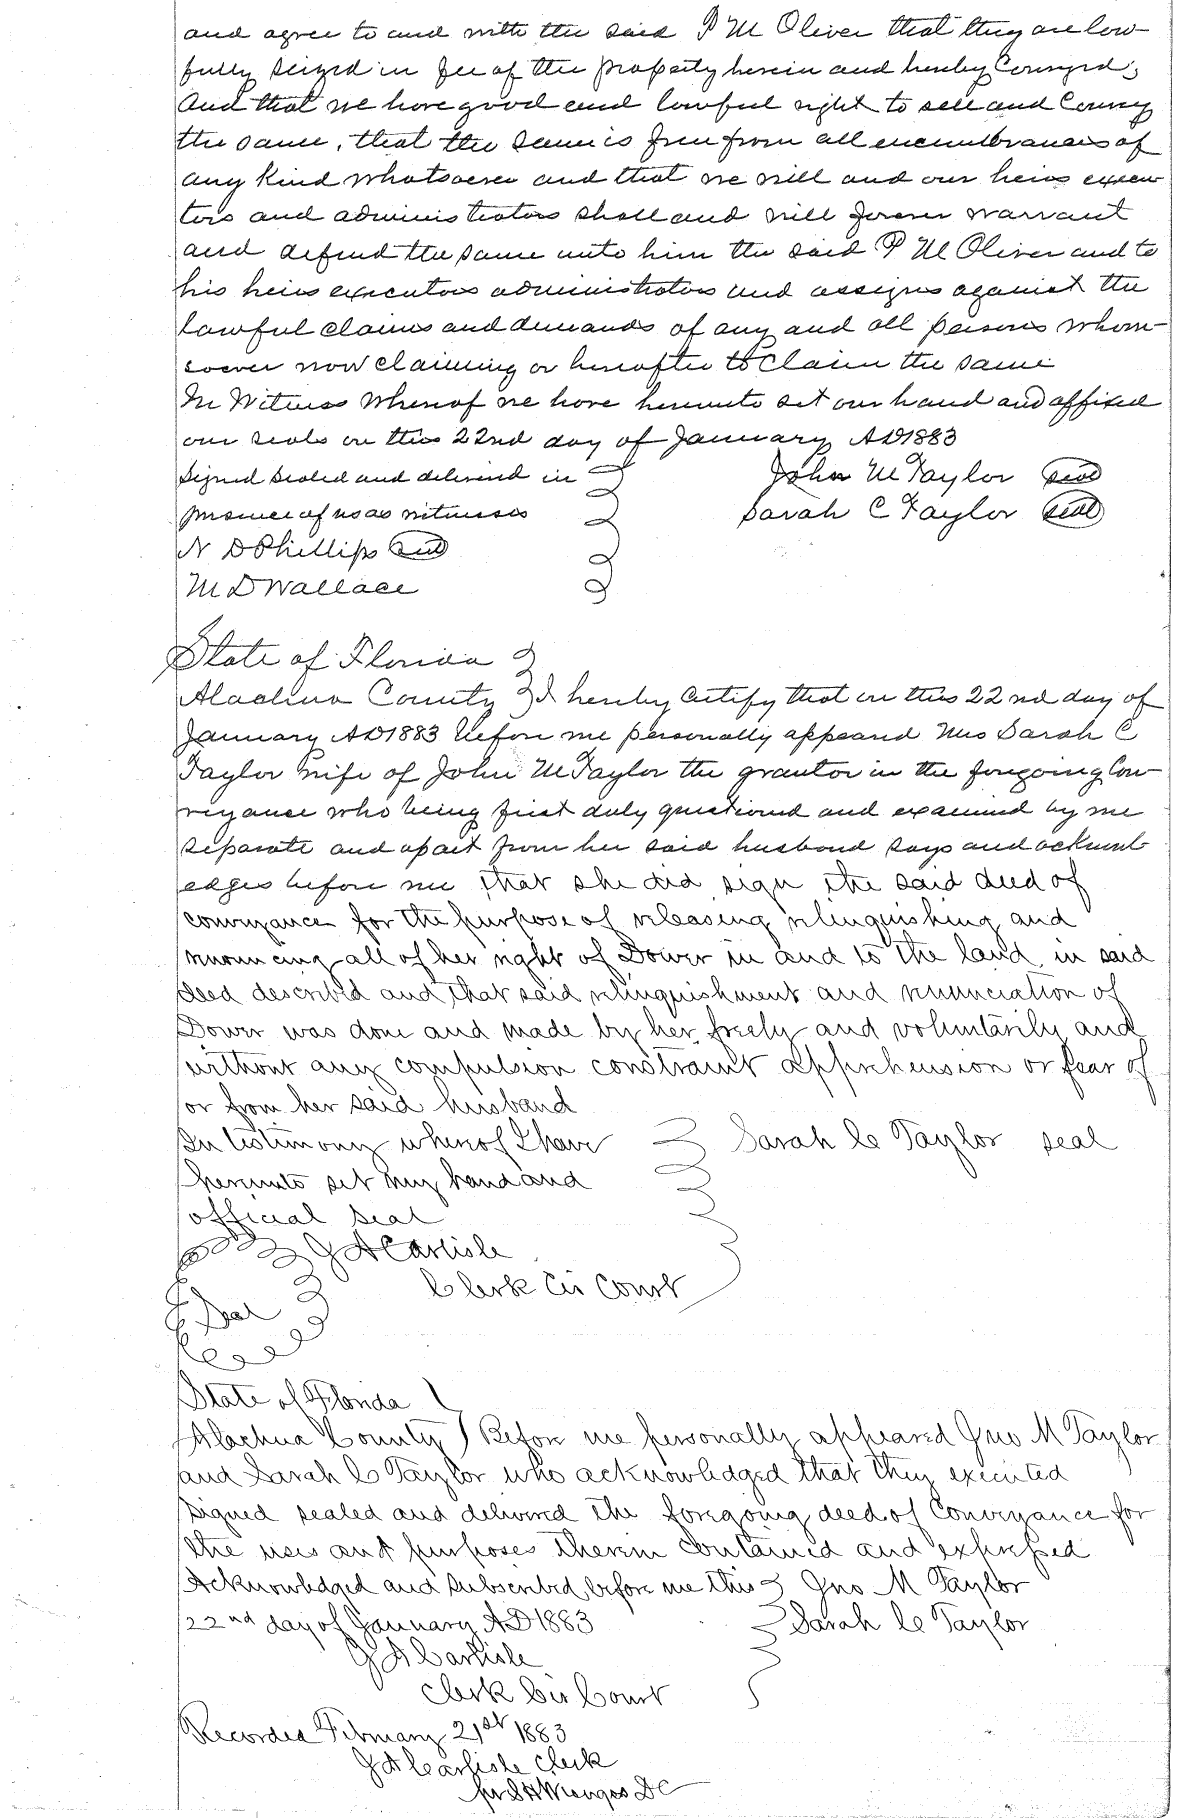 and agree to and with the said P M Oliver that they are law-
fully seized in fee of the property herein and hereby Conveyed;
And that we have good and lawful right to sell and Convey
the same, that the same is free from all encumbrances of
any kind whatsoever and that we will and our heirs execu
tors and administrators shall and will forever warrant
and defend the same unto him the said P M Oliver and to
his heirs executors administrators and assigns against the
lawful claims and demands of any and all persons whom-
soever now claiming or hereafter to Claim the same
In Witness Whereof we have hereunto set our hand and affixed
our seals on this 22nd day of January AD1883
Signed Sealed and delivered in John M Taylor seal
presence of us as witnesses Sarah C Taylor seal
N D Phillips seal
M D Wallace
State of Florida
Alachua County I hereby Certify that on this 22nd day of
January AD1883 before me personally appeared Mrs Sarah C
Taylor wife of John M Taylor the grantor in the foregoing Con-
veyance who being first duly questioned and examined by me
separate and apart from her said husband says and acknowl-
edges before me that she did sign the said deed of
conveyance for the purpose of releasing relinquishing and
renouncing all of her right of Dower in and to the land in said
deed described and that said relinquishment and renunciation of
Dower was done and made by her freely and voluntarily and
without any compulsion constraint apprehension or fear of
or from her said husband
In testimony whereof I have Sarah C Taylor seal
hereunto set my hand and
official seal
J A Carlisle
Clerk Cir Court
Seal
State of Florida
Alachua County Before me personally appeared Jno M Taylor
and Sarah C Taylor who acknowledged that they executed
signed sealed and delivered the foregoing deed of Conveyance for
the uses and purposes therein contained and expressed
Acknowledged and subscribed before me this Jno M Taylor
22nd day of January AD1883 Sarah C Taylor
J A Carlisle
Clerk Cir Court
Recorded February 21st 1883
J A Carlisle Clerk
per S H Wienges DC